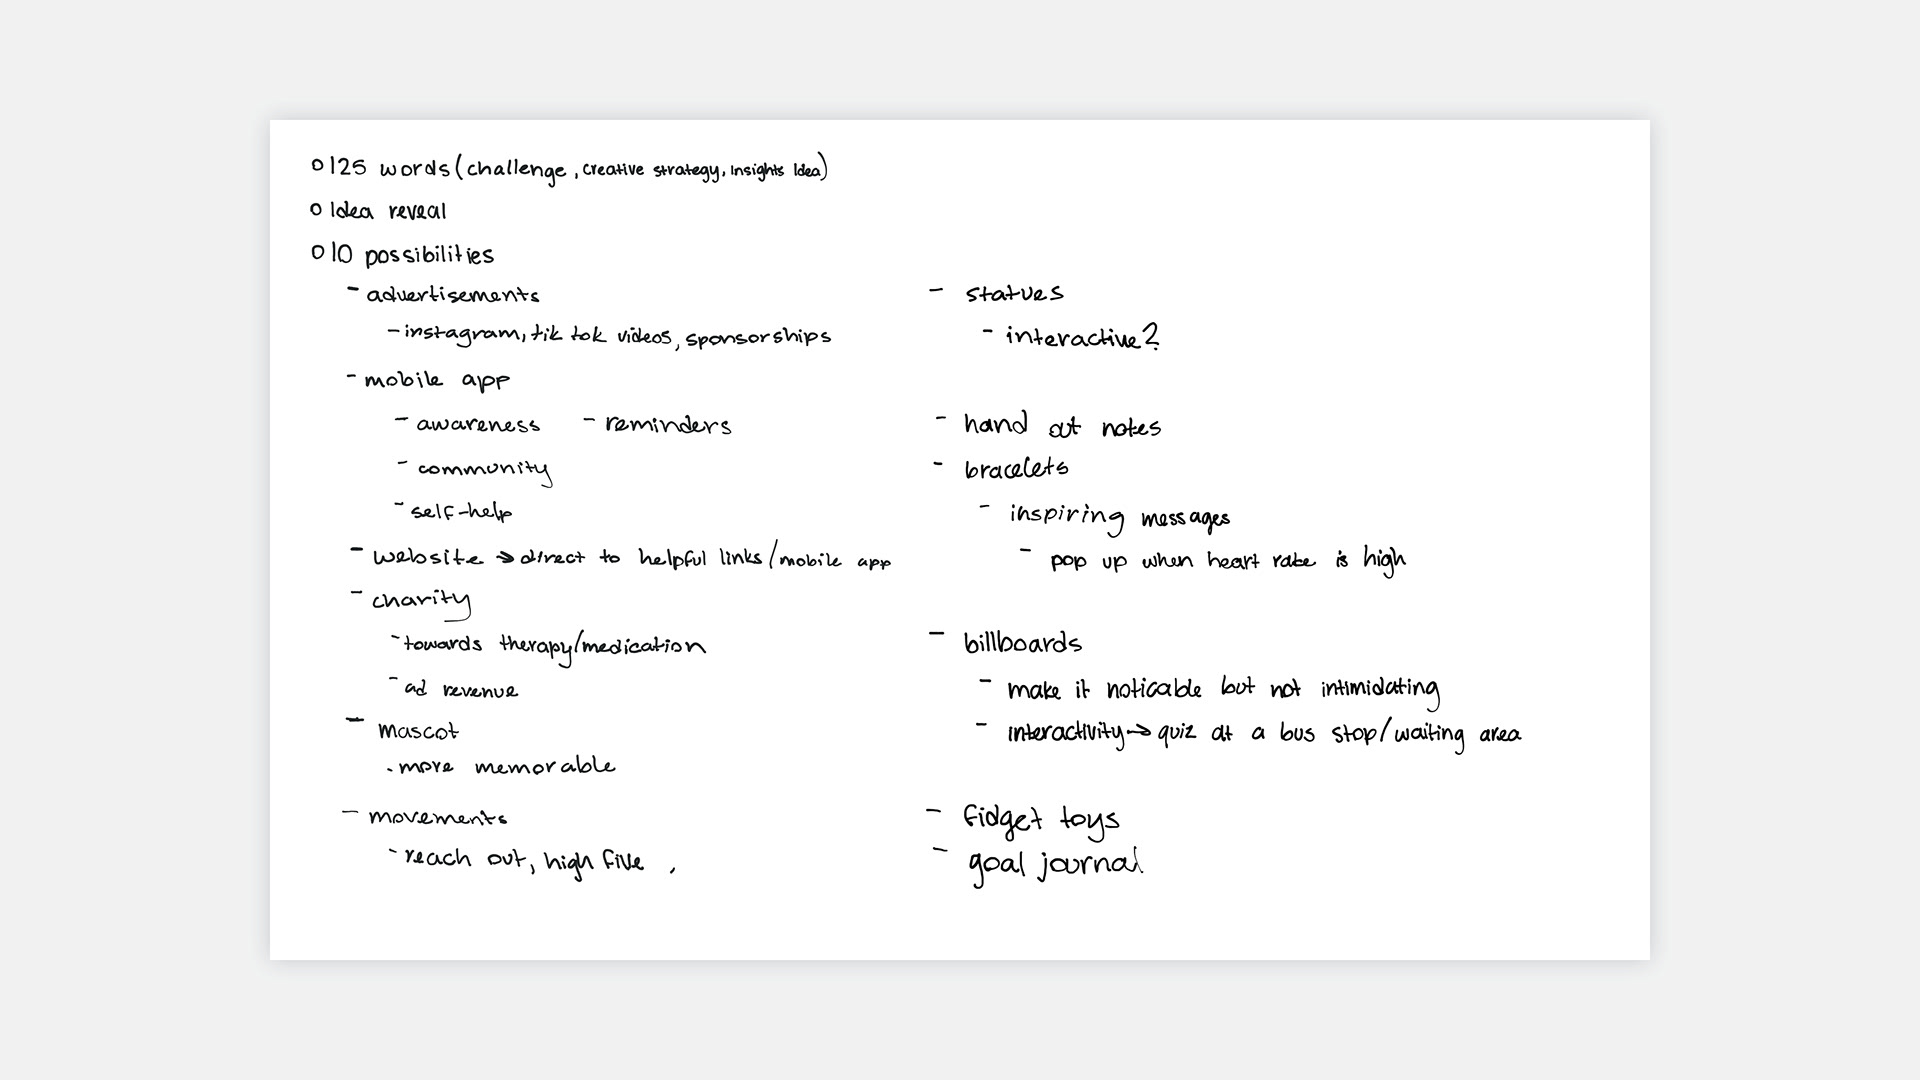 o 125 words (challenge, creative strategy, insights idea)
o Idea reveal
o 10 possibilities
- advertisements
- instagram, tik tok videos, sponsorships
- mobile app
- awareness - reminders
- community
- self-help
- website → direct to helpful links/mobile app
- charity
- towards therapy/medication
- ad revenue
- mascot
. more memorable
- movements
- reach out, high five ,
- statues
- interactive?
- hand out notes
- bracelets
- inspiring messages
- pop up when heart rate is high
- billboards
- make it noticable but not intimidating
- interactivity → quiz at a bus stop/waiting area
- fidget toys
- goal journal